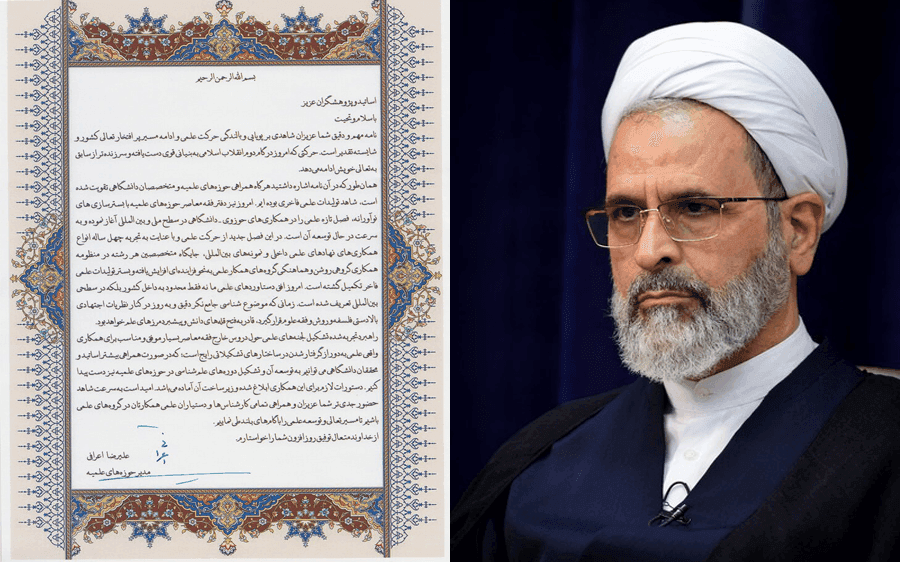 بسم الله الرحمن الرحیم
اساتید و پژوهشگران عزیز
با سلام و تحیت
نامه مهم و دقیق شما عزیزان شاهدی بر پویایی و بالندگی حرکت علمی و ادامه مسیر پر افتخار تعالی کشور و
شایسته تقدیر است. حرکتی که امروز در گام دوم انقلاب اسلامی به بنیانی قوی دست یافته و سرزنده تر از سابق
به تعالی خویش ادامه می دهد.
همان طور که در آن نامه اشاره داشتید هر گاه همراهی حوزه های علمیه و متخصصان دانشگاهی تقویت شده
است، شاهد تولیدات علمی فاخری بوده ایم. امروز نیز دفتر فقه معاصر حوزه های علمیه با بسترسازی های
نوآورانه، فصل تازه علمی را در همکاری های حوزوی - دانشگاهی در سطح ملی و بین المللی آغاز نموده و به
سرعت در حال توسعه آن است. در این فصل جدید از حرکت علمی و با عنایت به تجربه چهل ساله انواع
همکاری های نهادهای علمی داخلی و نمونه های بین المللی، جایگاه متخصصین هر رشته در منظومه
همکاری گروهی روشن و هماهنگی گروه های همکار علمی به نحو فزاینده ای افزایش یافته و بستر تولیدات علمی
فاخر تکمیل گشته است. امروز افق دستاوردهای علمی ما نه فقط محدود به داخل کشور بلکه در سطحی
بین المللی تعریف شده است. زمانی که موضوع شناسی جامع نگر دقیق و به روز در کنار نظریات اجتهادی
بالادستی فلسفه و روش و فقه علوم قرار گیرد، قادر به فتح قله های دانش و پیشبرد مرزهای علم خواهد بود.
راهبرد تجربه شده تشکیل لجنه های علمی حول دروس خارج فقه معاصر بسیار موفق و مناسب برای همکاری
واقعی علمی به دور از گرفتار شدن در ساختارهای تشکیلاتی رایج است؛ که در صورت همراهی بیشتر اساتید و
محققان دانشگاهی می توانیم به توسعه آن و تشکیل دوره های علم شناسی در حوزه های علمیه نیز دست پیدا
کنیم. دستورات لازم برای این همکاری ابلاغ شده و زیرساخت آن آماده می باشد. امید است به سرعت شاهد
حضور جدی تر شما عزیزان و همراهی تمامی کارشناس ها و دستیاران علمی همکارتان در گروه های علمی
باشیم تا مسیر تعالی و توسعه علمی را با گام های بلند طی نماییم.
از خداوند متعال توفیق روز افزون شما را خواستارم.
علیرضا اعرافی
مدیر حوزه های علمیه